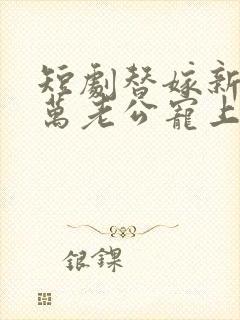 短劇替嫁新
萬老公寵上
銀鏍